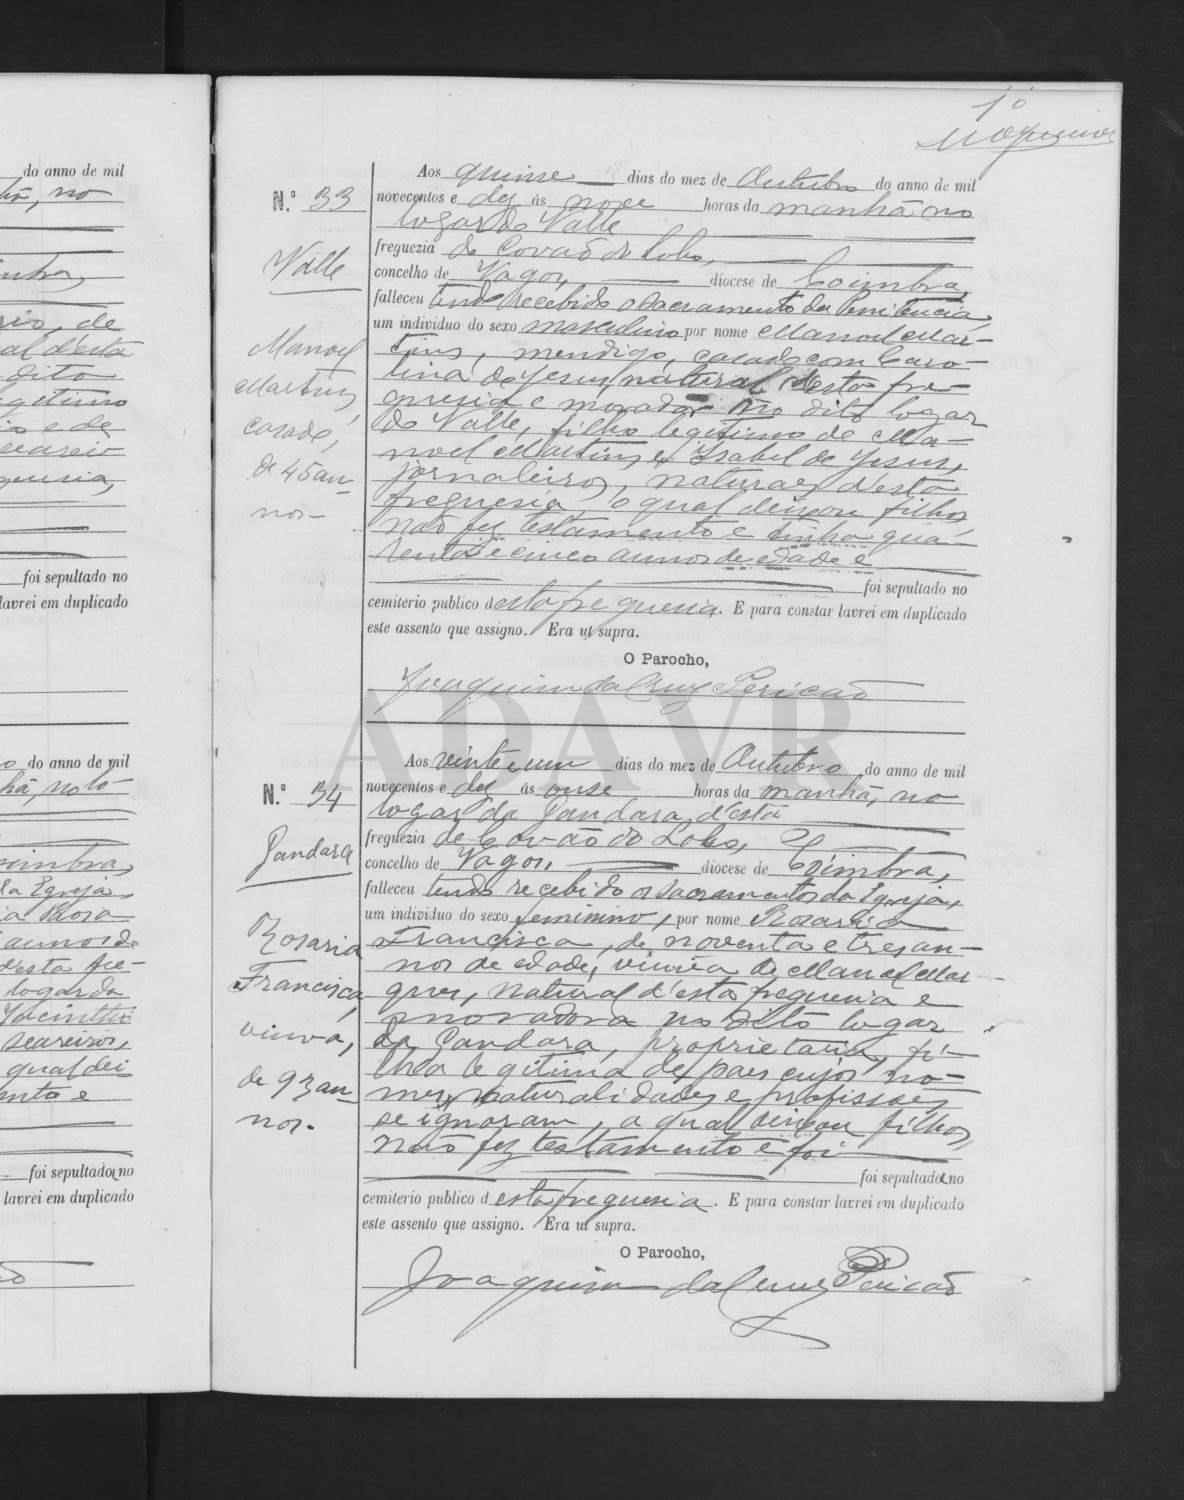 do anno de mil
no
de
al d'esta
dito
gitimo
e de
seareiro
guesia,
foi sepultado no
lavrei em duplicado
do anno de mil
hã, no lo-
oimbra,
da Egreja,
ia Rosa
annos de
d'esta fre-
logar da
Jacintho
seareiros,
qual dei
ento e
foi sepultado no
lavrei em duplicado
10
N.º 33
Valle
Manoel
Martins,
casado,
de 45 an-
nos-
Aos quinse dias do mez de Outubro do anno de mil
novecentos e dez ás nove horas da manhã no
logar do Valle
freguezia de Covão do Lobo,
concelho de Vagos, diocese de Coimbra,
falleceu tendo recebido o sacramento da Penitencia,
um individuo do sexo masculino por nome Manoel Mar-
tins, mendigo, casado com Caro-
lina de Jesus, natural d'esta fre-
guesia e morador no dito logar
do Valle, filho legitimo de Ma-
noel Martins, e Isabel de Jesus,
jornaleiros, naturaes d'esta
freguesia, o qual deixou filhos
não fez testamento e tinha qua-
renta e cinco annos de edade e
foi sepultado no
cemiterio publico d'esta freguesia. E para constar lavrei em duplicado
este assento que assigno. Era ut supra.
O Parocho,
Joaquim da Cruz Pericão
ADAVR
N.º 34
Gandara
Rosaria
Francisca,
viuva,
de 93 an-
nos.
Aos vinte e um dias do mez de Outubro do anno de mil
novecentos e dez ás onse horas da manhã, no
logar da Gandara d'esta
freguezia de Covão do Lobo,
concelho de Vagos, diocese de Coimbra,
falleceu tendo recebido os sacramentos da Egreja,
um individuo do sexo feminino, por nome Rosaria
Francisca, de noventa e tres an-
nos de edade, viuva de Manoel Mar-
ques, natural d'esta freguesia e
moradora no dito logar
da Gandara, proprietaria, fi-
lha legitima de paes cujos no-
mes, naturalidades e profissões
se ignoram, a qual deixou filhos,
não fez testamento e foi
foi sepultado no
cemiterio publico d'esta freguesia. E para constar lavrei em duplicado
este assento que assigno. Era ut supra.
O Parocho,
Joaquim da Cruz Pericão